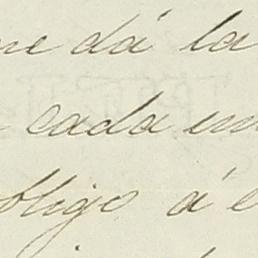 me dá la
cada un
obligo á e